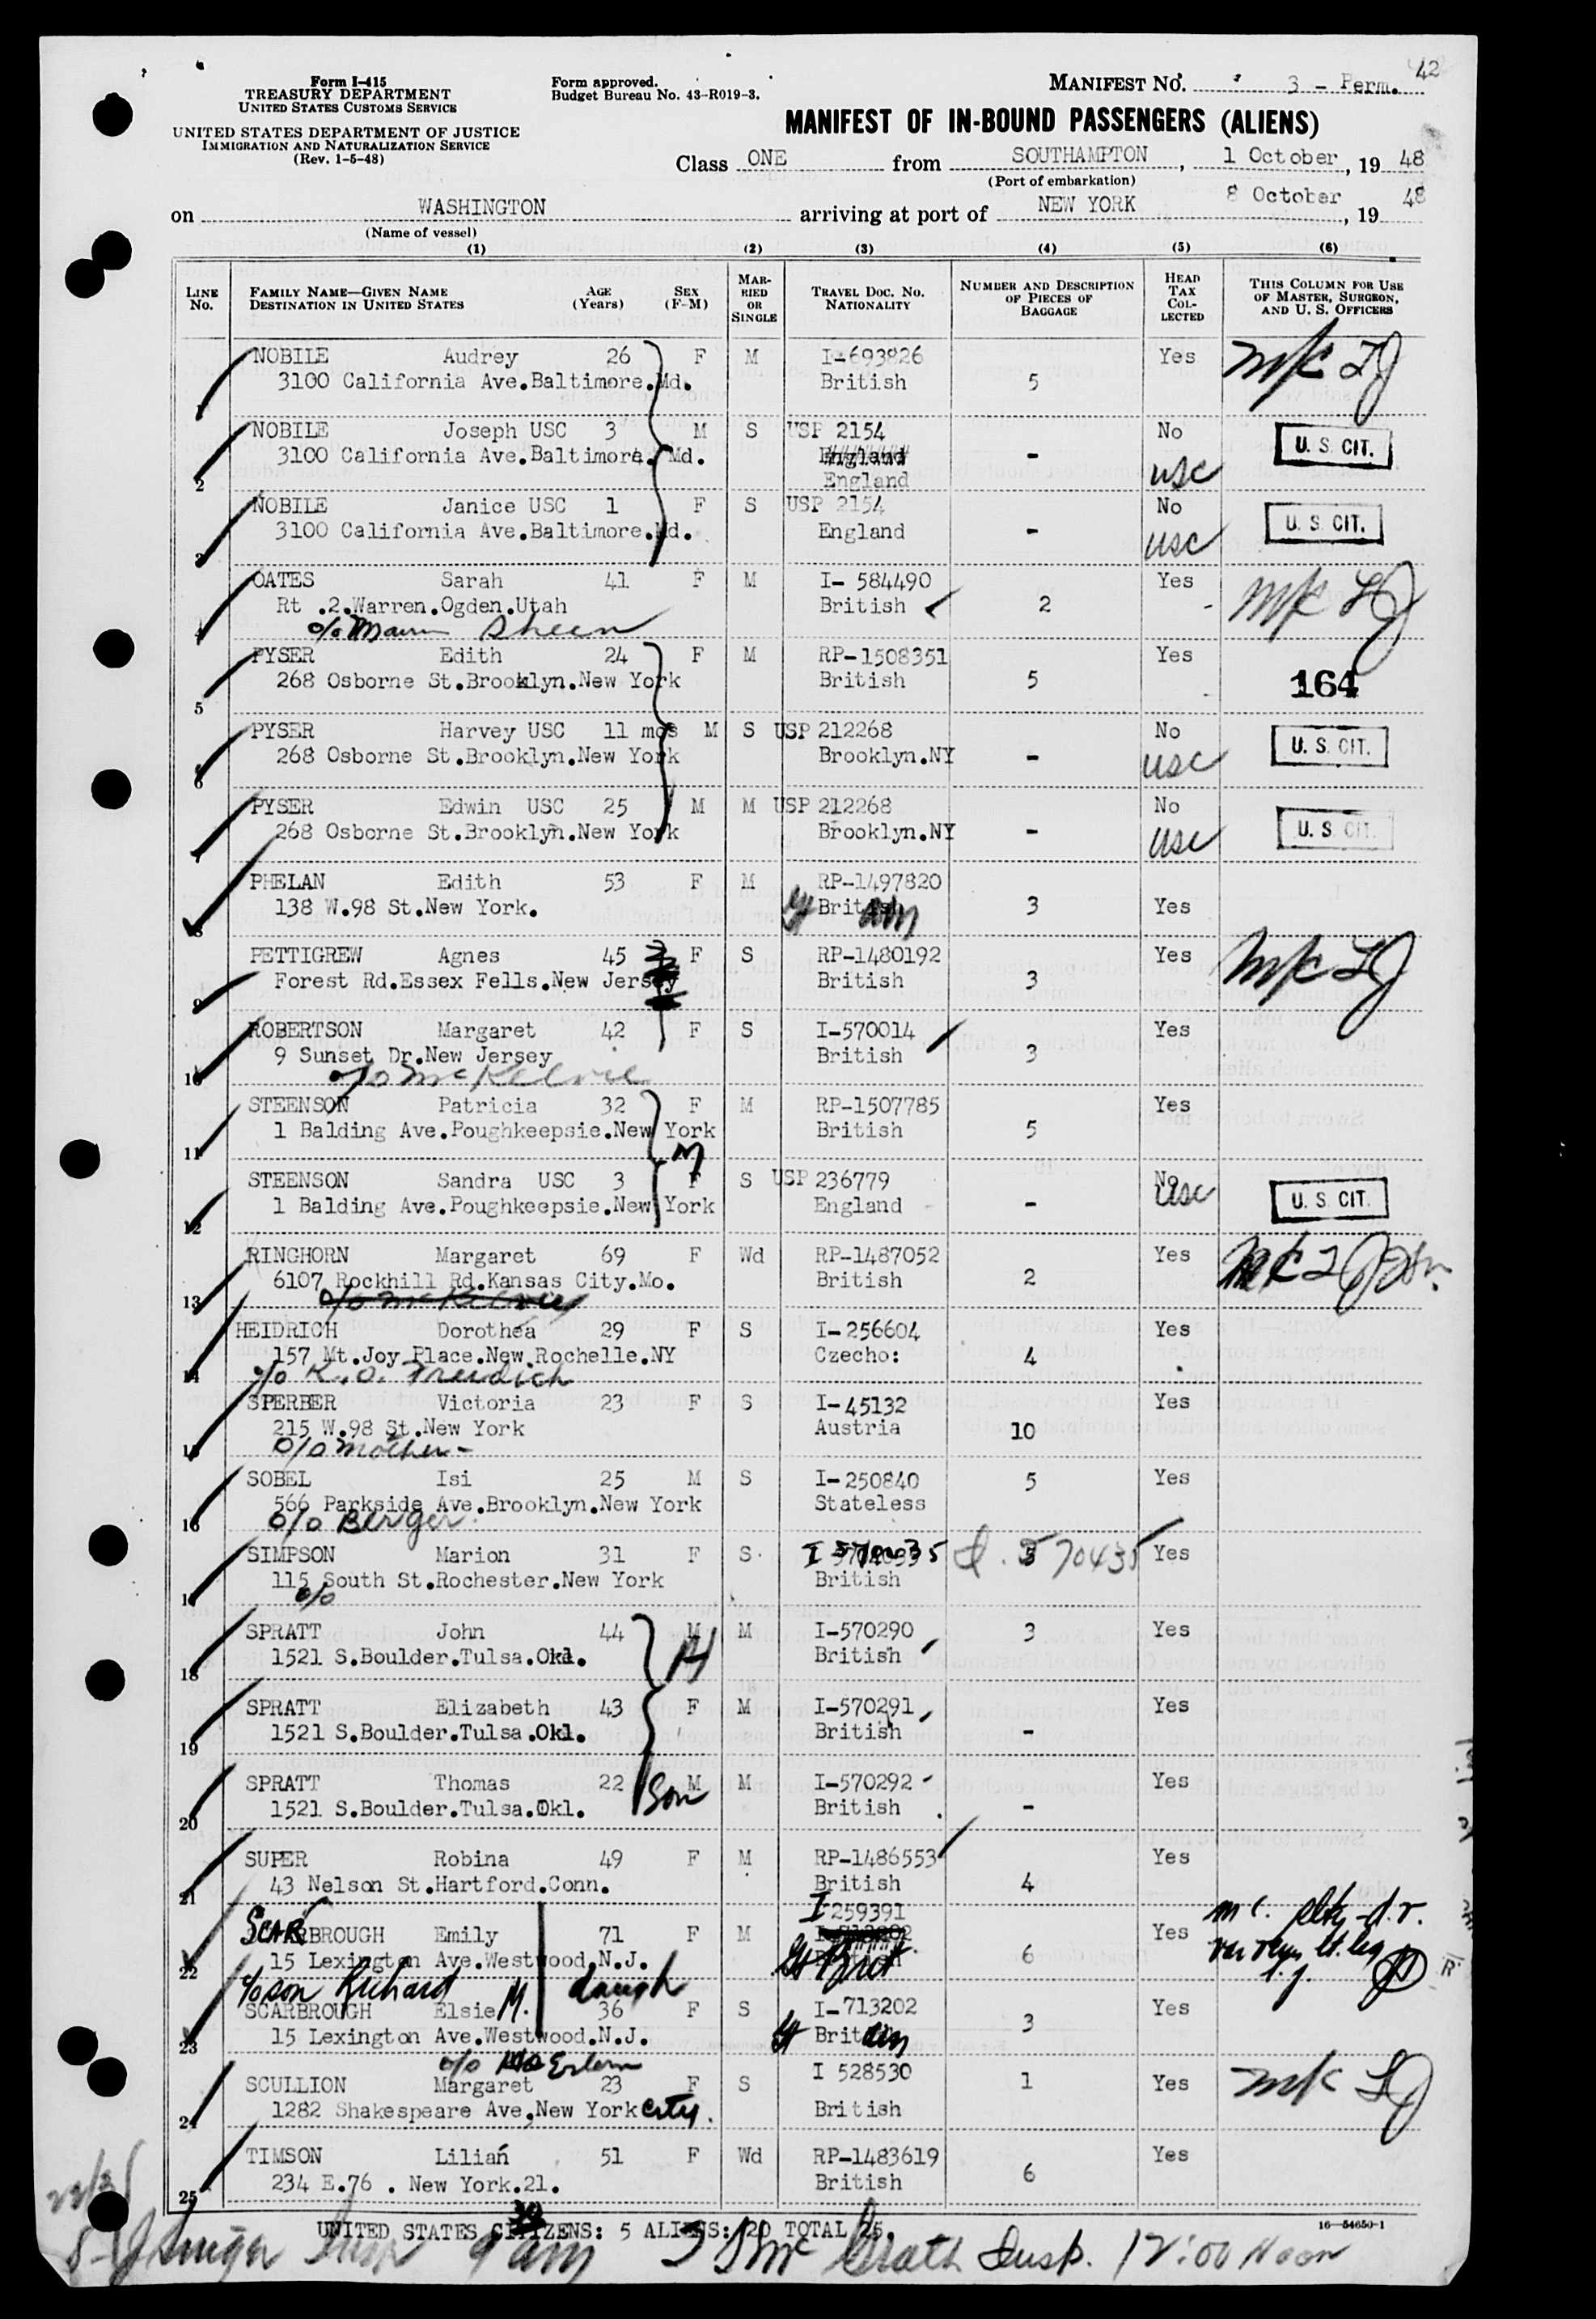 42
Form I-415
TREASURY DEPARTMENT
UNITED STATES CUSTOMS SERVICE
UNITED STATES DEPARTMENT OF JUSTICE
IMMIGRATION AND NATURALIZATION SERVICE
(Rev. 1-5-48)
Form approved.
Budget Bureau No. 43-R019-3.
MANIFEST NO. 3 - Perm.
MANIFEST OF IN-BOUND PASSENGERS (ALIENS)
Class ONE from SOUTHAMPTON, 1 October, 19 48
(Port of embarkation)
on WASHINGTON arriving at port of NEW YORK 8 October, 19 48
(Name of vessel)
(1) (2) (3) (4) (5) (6)
LINE NO. FAMILY NAME—GIVEN NAME DESTINATION IN UNITED STATES AGE (Years) SEX (F-M) MARRIED OR SINGLE TRAVEL DOC. NO. NATIONALITY NUMBER AND DESCRIPTION OF PIECES OF BAGGAGE HEAD TAX COLLECTED THIS COLUMN FOR USE OF MASTER, SURGEON, AND U. S. OFFICERS
NOBILE Audrey 26 F M I-693826 Yes
1 3100 California Ave.Baltimore.Md. British 5
NOBILE Joseph USC 3 M S USP 2154 No U. S. CIT.
3100 California Ave.Baltimore. Md. England - usc
2 England
NOBILE Janice USC 1 F S USP 2154 No U. S. CIT.
3 3100 California Ave.Baltimore.Md. England - usc
OATES Sarah 41 F M I- 584490 Yes
Rt .2.Warren.Ogden.Utah British 2
4 Sheen
PYSER Edith 24 F M RP-1508351 Yes
5 268 Osborne St.Brooklyn.New York British 5 164
PYSER Harvey USC 11 mos M S USP 212268 No U. S. CIT.
6 268 Osborne St.Brooklyn.New York Brooklyn.NY - usc
PYSER Edwin USC 25 M M USP 212268 No U. S. CIT.
7 268 Osborne St.Brooklyn.New York Brooklyn.NY - usc
PHELAN Edith 53 F M RP-1497820
8 138 W.98 St.New York. British 3 Yes
PETTIGREW Agnes 45 F S RP-1480192 Yes
9 Forest Rd.Essex Fells.New Jersey British 3
ROBERTSON Margaret 42 F S I-570014 Yes
9 Sunset Dr.New Jersey British 3
10 c/o McKelvie
STEENSON Patricia 32 F M RP-1507785 Yes
11 1 Balding Ave.Poughkeepsie.New York British 5
M
STEENSON Sandra USC 3 F S USP 236779 No usc U. S. CIT.
12 1 Balding Ave.Poughkeepsie.New York England -
RINGHORN Margaret 69 F Wd RP-1487052 Yes
6107 Rockhill Rd.Kansas City.Mo. British 2
13 c/o McKelvie
HEIDRICH Dorothea 29 F S I-256604 Yes
157 Mt.Joy Place.New Rochelle.NY Czecho: 4
14 c/o K.O. Freudich
SPERBER Victoria 23 F S I-45132 Yes
215 W.98 St.New York Austria 10
15 c/o mother -
SOBEL Isi 25 M S I-250840 5 Yes
566 Parkside Ave.Brooklyn.New York Stateless
16 c/o Berger
SIMPSON Marion 31 F S I 570435 I. 570435 Yes
115 South St.Rochester.New York British
17 c/o
SPRATT John 44 M M I-570290 3 Yes
18 1521 S.Boulder.Tulsa.Okl. H British
SPRATT Elizabeth 43 F M I-570291 Yes
19 1521 S.Boulder.Tulsa.Okl. British -
SPRATT Thomas 22 M M I-570292 Yes
20 1521 S.Boulder.Tulsa.Okl. Son British -
SUPER Robina 49 F M RP-1486553 Yes
21 43 Nelson St.Hartford.Conn. British 4
I 259391
SCARBROUGH Emily 71 F M Yes
22 15 Lexington Ave.Westwood.N.J. Gt Brit 6
c/o son Richard M. daugh
SCARBROUGH Elsie 36 F S I-713202 Yes
23 15 Lexington Ave.Westwood.N.J. Gt Britain 3
SCULLION Margaret 23 F S I 528530 1 Yes
24 1282 Shakespeare Ave,New York City. British
TIMSON Lilian 51 F Wd RP-1483619 Yes
25 234 E.76 . New York.21. British 6
UNITED STATES CITIZENS: 5 ALIENS: 20 TOTAL 25.
16—54650-1
9 am Grath Insp. 12:00 Noon